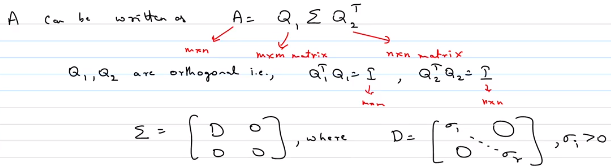 A can be written as A = Q₁ Σ Q₂ᵀ
m×n m×m matrix n×n matrix
Q₁, Q₂ are orthogonal i.e., Q₁ᵀQ₁ = I , Q₂ᵀQ₂ = I
m×m n×n
Σ = [ D 0 ; 0 0 ] , where D = [ σ₁ ⋱ σᵣ ] , σᵢ > 0